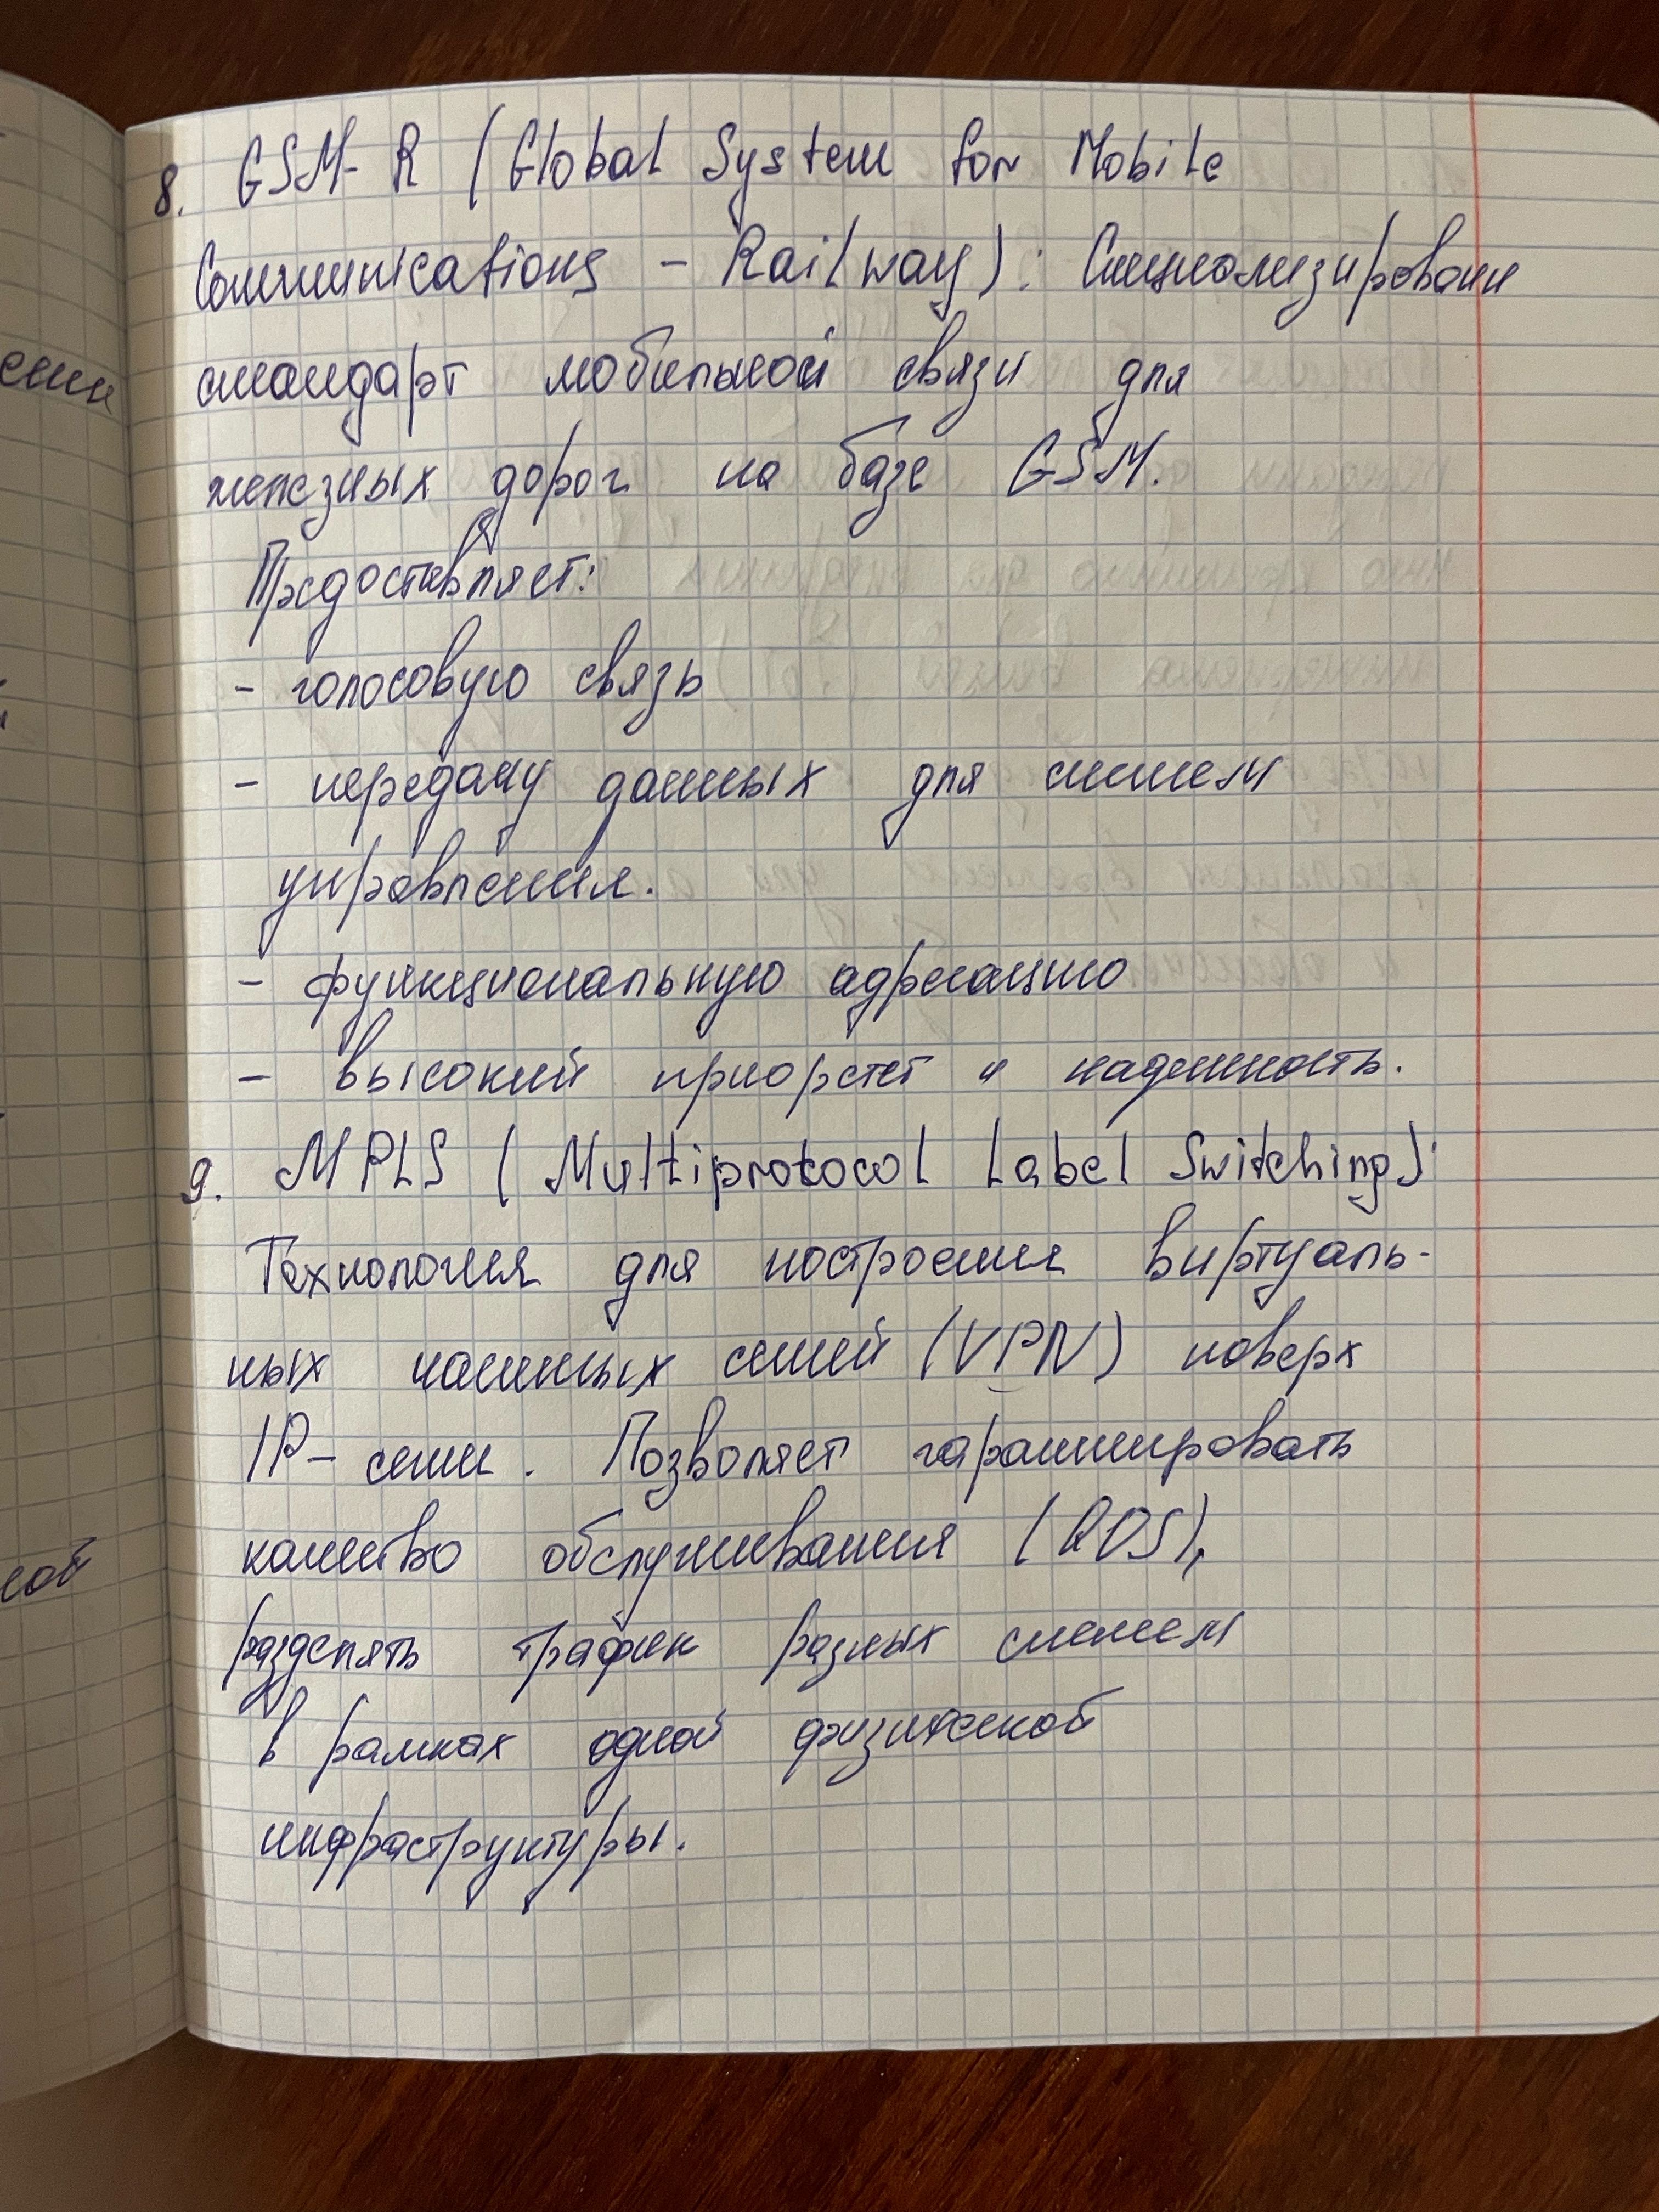 8. GSM-R (Global System for Mobile
Communications - Railway): Специализированн
стандарт мобильной связи для
железных дорог на базе GSM.
Предоставляет:
- голосовую связь
- передачу данных для систем
управления.
- функциональную адресацию
- высокий приоретет и надежность.
9. MPLS (Multiprotocol Label Switching):
Технология для построения виртуаль-
ных частных сетей (VPN) поверх
IP- сети. Позволяет гарантировать
качество обслуживания (QOS),
разделять трафик разных систем
в рамках одной физической
инфраструктуры.